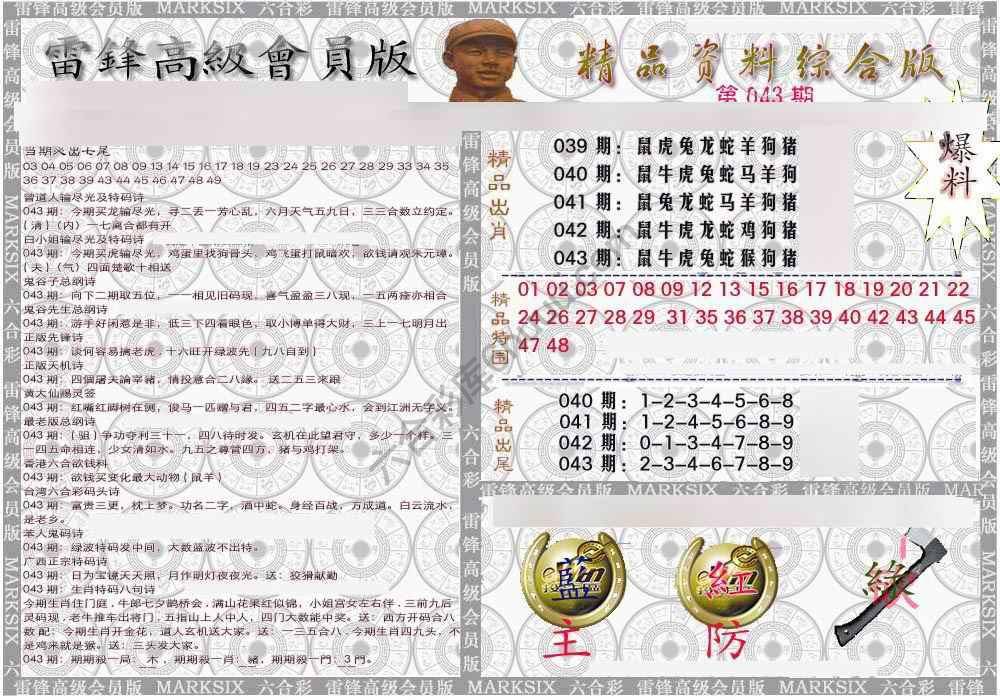 雷锋高级会员版 MARKSIX 六合彩 雷锋高级会员版 MARKSIX 六合彩 雷锋高级会员版
雷鋒高級會員版
精品资料综合版
第 043 期
爆料
当期火出七尾
03 04 05 06 07 08 09 13 14 15 16 17 18 19 23 24 25 26 27 28 29 33 34 35
36 37 38 39 43 44 45 46 47 48 49
曾道人输尽光及特码诗
043 期：今期买龙输尽光，寻二丢一芳心乱，六月天气五九日，三三合数立约定。
{清}（内）一七离合都有开
白小姐输尽光及特码诗
043 期：今期买虎输尽光，鸡蛋里找狗骨头，鸡飞蛋打鼠暗欢，欲钱请观朱元璋。
{夫}（气）四面楚歌十相送
鬼谷子总纲诗
043 期：向下二期取五位，一一相见旧码现，喜气盈盈三八现，一五两痊亦相合
鬼谷先生总纲诗
043 期：游手好闲惹是非，低三下四看眼色，取小博单得大财，三上一七明月出
正版先锋诗
043 期：谈何容易擒老虎．十六旺开绿波先{九八自到}
正版天机诗
043 期：四個屠夫論宰豬，情投意合二八緣。送二五三來跟
黄大仙赐灵签
043 期：红嘴红脚树在侧，俊马一匹赠与君，四五二字最心水，会到江洲无字义。
最老版总纲诗
043 期：{驵}争功夺利三十一，四八待时发。玄机在此望君守，多少一个样。三
一四五命相连，少女清如水。九五之尊管四方，猪与鸡打架。
香港六合欲钱料
043 期：欲钱买变化最大动物{鼠羊}
台湾六合彩码头诗
043 期：富贵三更，枕上梦。功名二字，酒中蛇。身经百战，方成道。白云流水，
是老乡。
苯人鬼码诗
043 期：绿波特码发中间，大数蓝波不出特。
广西正宗特码诗
043 期：日为宝镜天天照，月作明灯夜夜光。送：狡猾献勤
043 期：生肖特码八句诗
今期生肖住门庭．牛郎七夕鹊桥会．满山花果红似锦，小姐宫女左右伴．三前九后
灵码现．老牛推车出将门．五指山上人中人，四门大数能中奖。送：西方开码合八
数 配：今期生肖开金花，道人玄机送大家。送：一三五合八．今期生肖四九头，不
是鸡来就是猴。送：三头发大家。
043 期：期期殺一局：木，期期殺一肖：豬，期期殺一門：3 門。
精品出肖
039 期：鼠虎兔龙蛇羊狗猪
040 期：鼠牛虎兔蛇马羊狗
041 期：鼠兔龙蛇马羊狗猪
042 期：鼠牛虎龙蛇鸡狗猪
043 期：鼠牛虎兔蛇猴狗猪
精品特围
01 02 03 07 08 09 12 13 15 16 17 18 19 20 21 22
24 26 27 28 29 31 35 36 37 38 39 40 42 43 44 45
47 48
精品出尾
040 期：1-2-3-4-5-6-8
041 期：1-2-4-5-6-8-9
042 期：0-1-3-4-7-8-9
043 期：2-3-4-6-7-8-9
雷锋高级会员版 MARKSIX 六合彩 雷锋高级会员版
藍
主
紅
防
綠
雷锋高级会员版 MARKSIX 六合彩 雷锋高级会员版 MARKSIX 六合彩 雷锋高级会员版